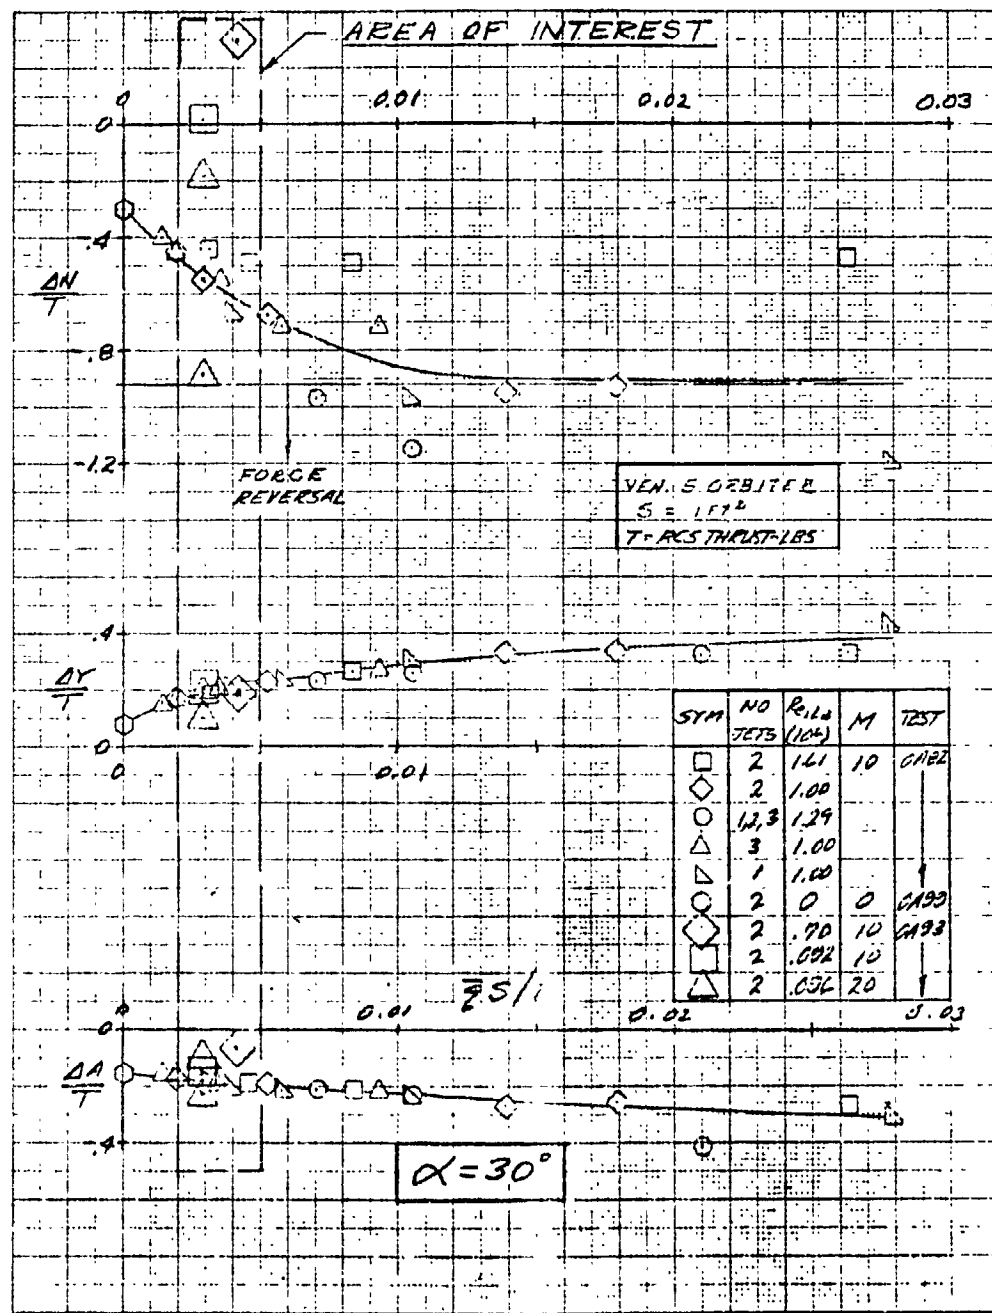 AREA OF INTEREST
0 0.01 0.02 0.03
0
.4
ΔN/T
-.8
-1.2
FORCE
REVERSAL
S = 1 FT²
T = RCS THRUST-LBS
.4
ΔY/T
0
0 0.01
SYM NO JETS (10⁶) M TEST
□ 2 1.61 10 OA82
◇ 2 1.00
○ 1,2,3 1.29
△ 3 1.00
1 1.00
2 0 0 OA93
◇ 2 .70 10 OA93
□ 2 10
△ 2 20
0 0.01 0.02 0.03
0
ΔA/T
.4
α = 30°